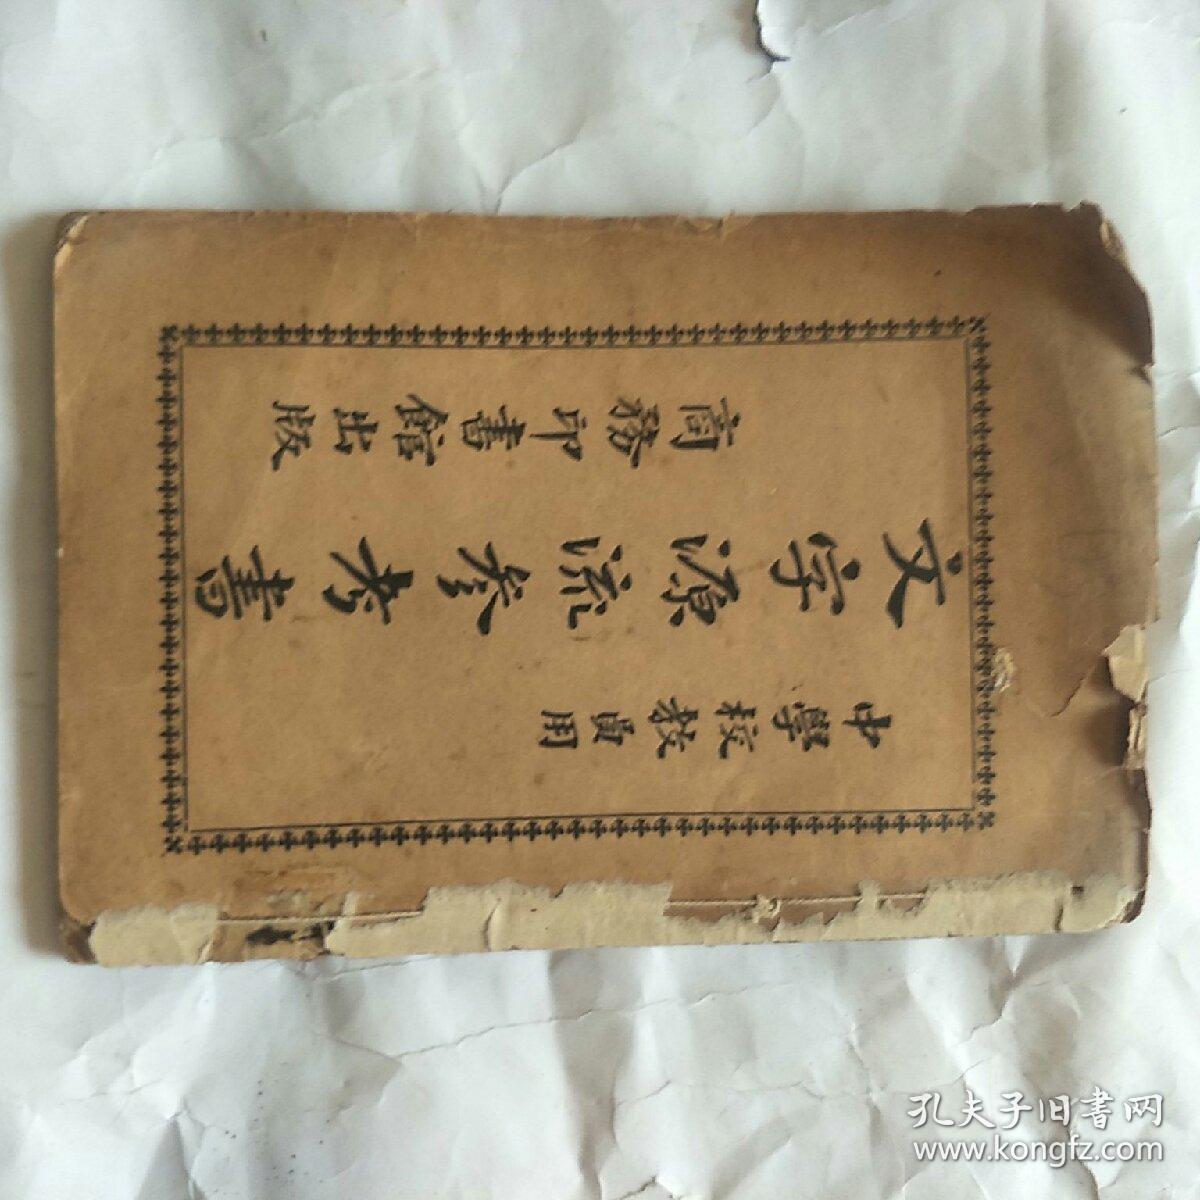 中學校教員用
文字源流參考書
商務印書館出版
孔夫子旧書网
www.kongfz.com